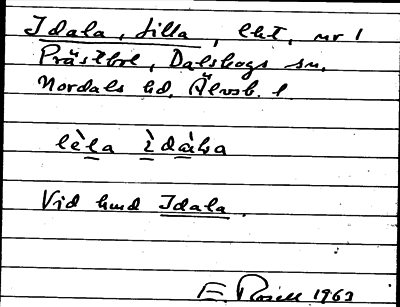 Idala, Lilla, lht, nr 1
Prästbol, Dalskogs sn,
Nordals hd, Älvsb. l.
Vid hmd Idala.
E. Rosell 1963